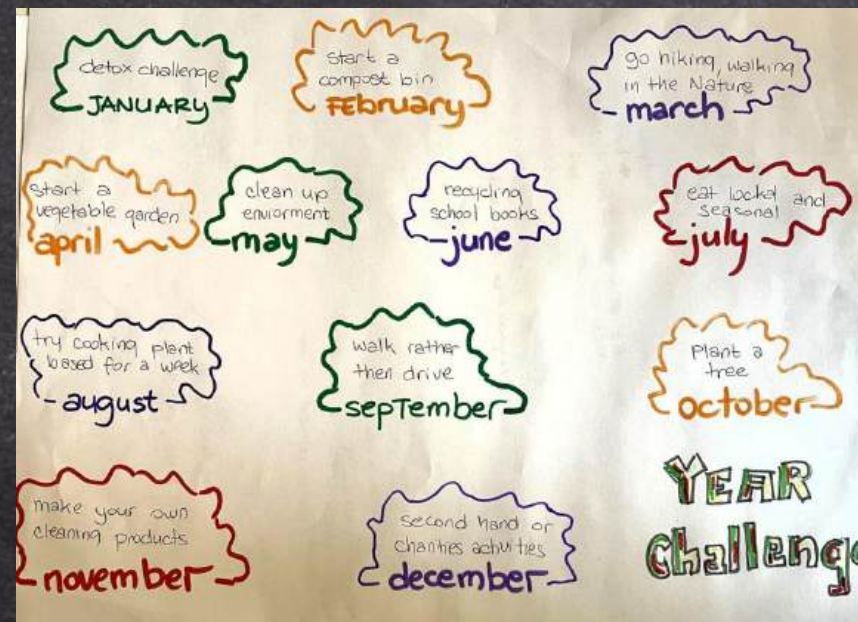 detox challenge
JANUARY
start a
compost bin
FEbruary
go hiking, walking
in the Nature
march
start a
vegetable garden
april
clean up
enviorment
may
recycling
school books
june
eat lockal and
seasonal
july
try cooking plant
based for a week
august
walk rather
then drive
sepTember
Plant a
tree
october
make your own
cleaning products
november
second hand or
charities activities
december
YEAR
Challenge